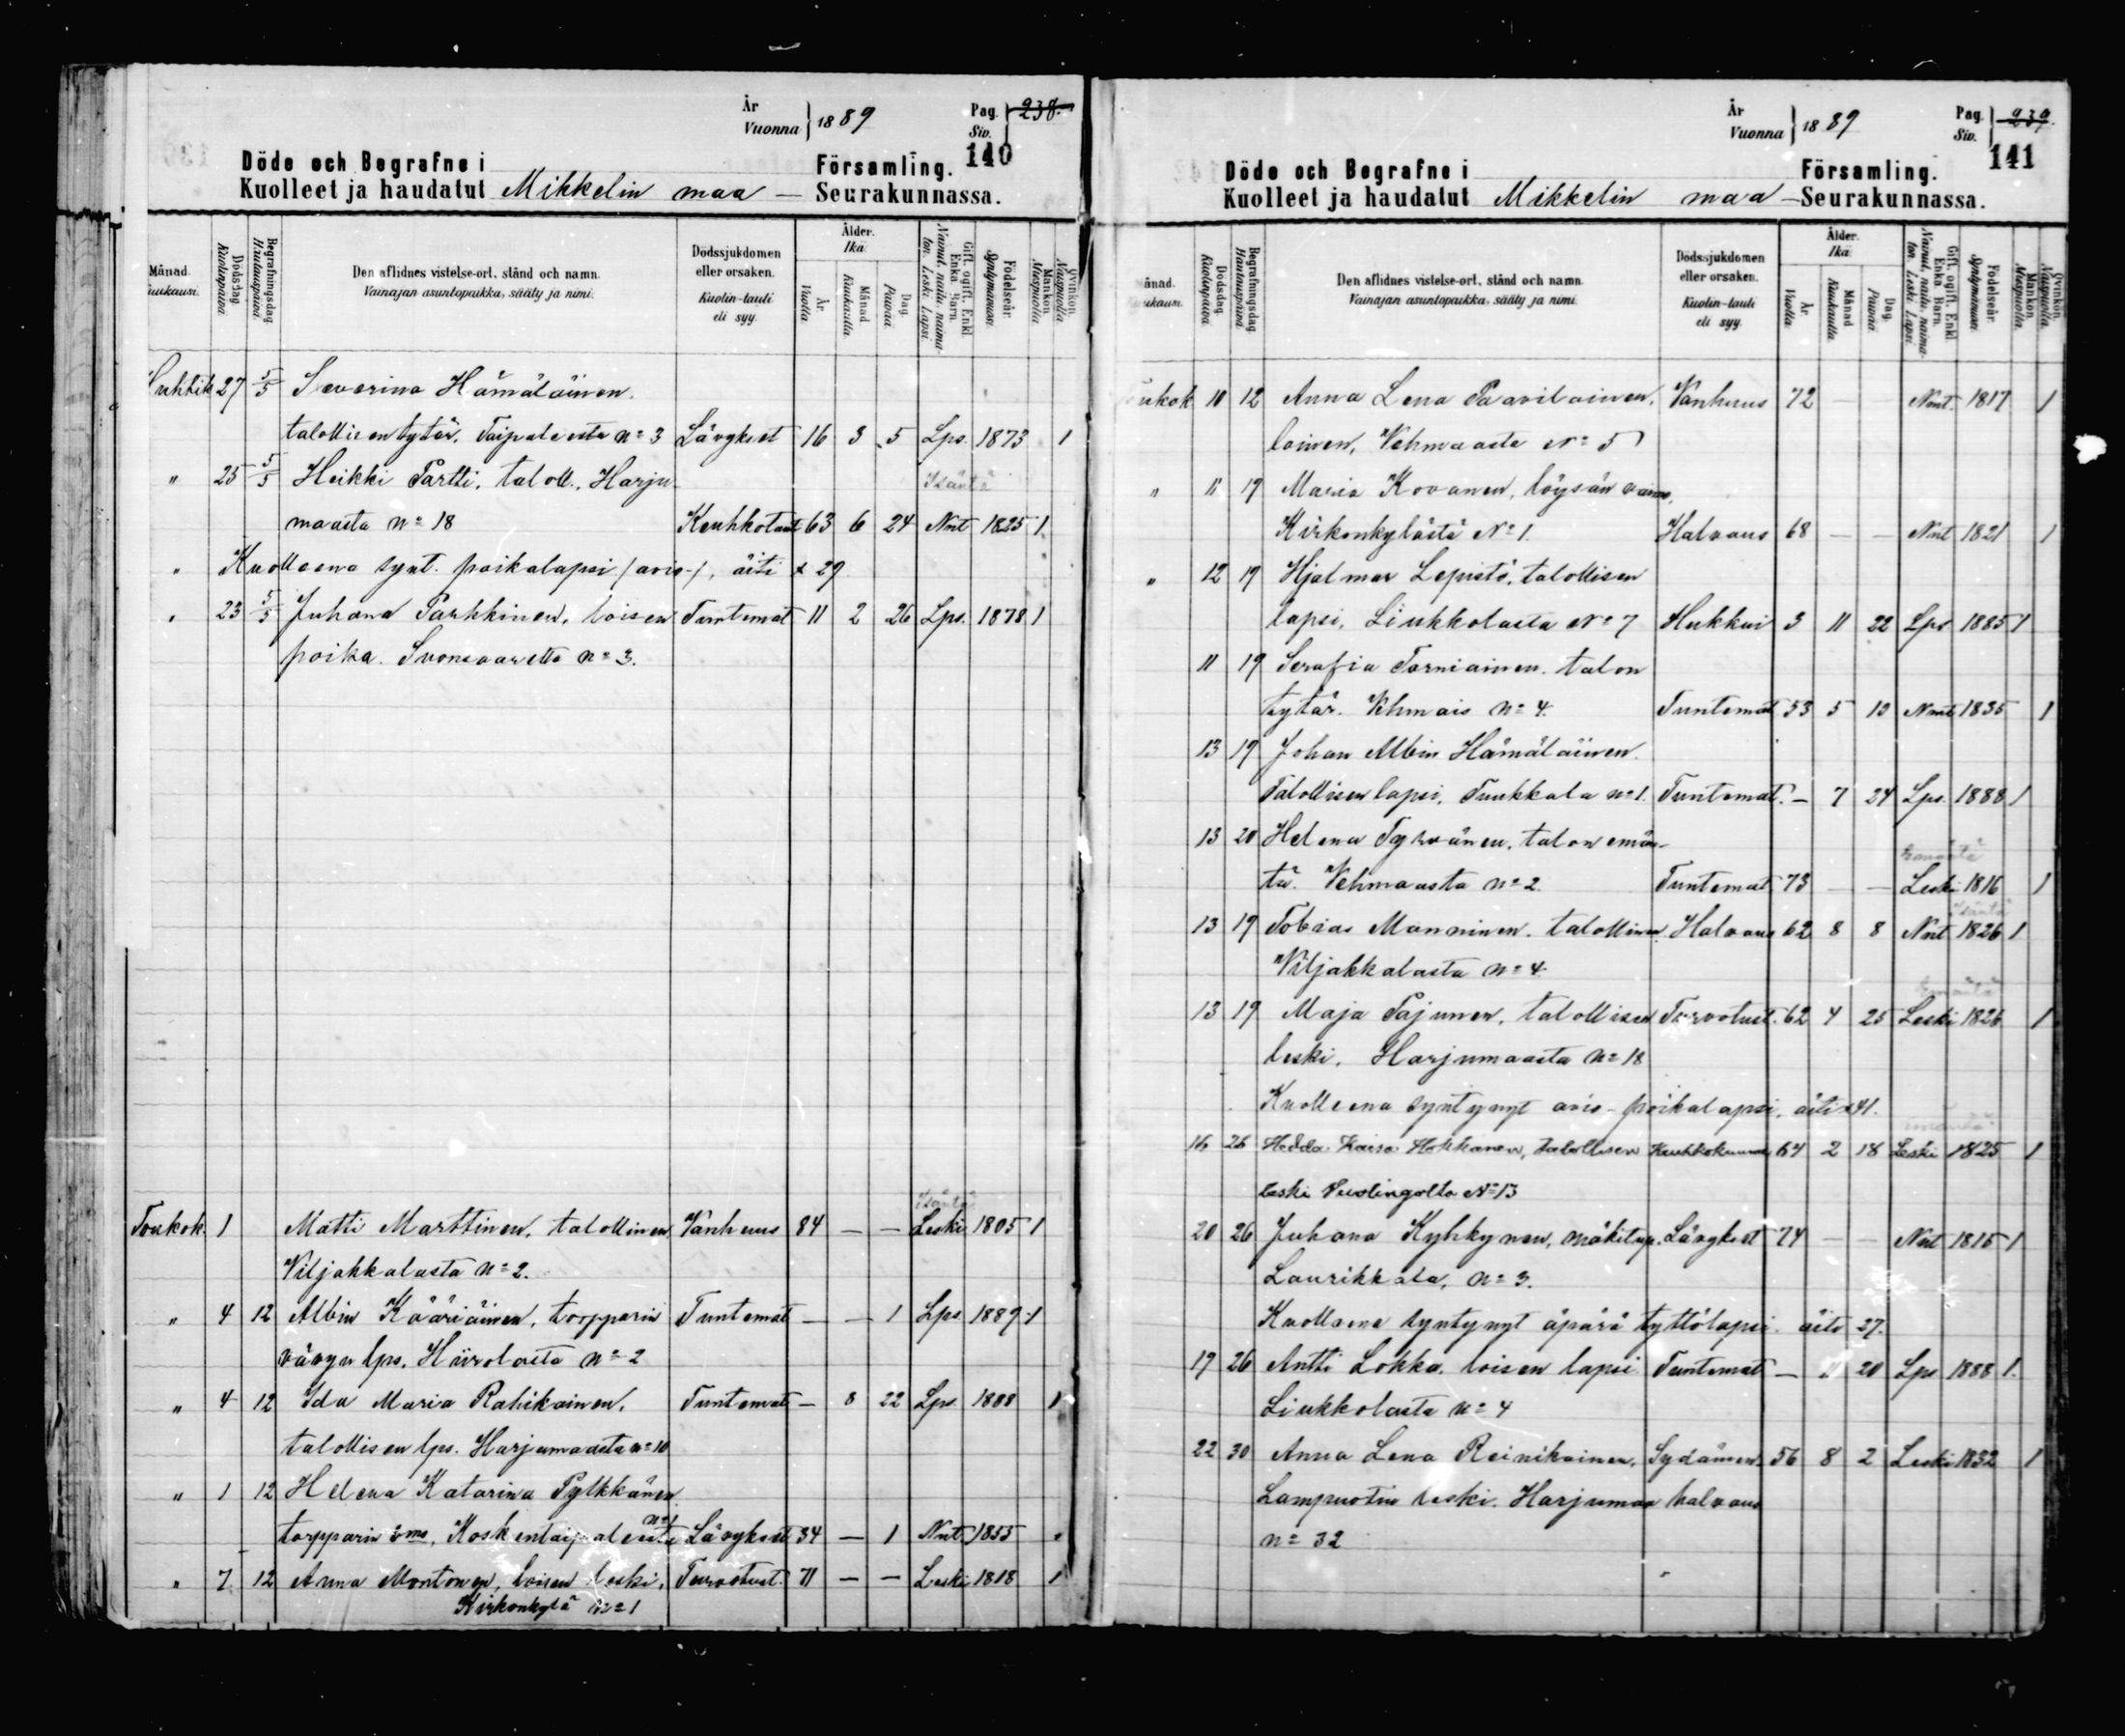 År
Vuonna 1889
Pag. 238.
Siv. 140
Döde och Begrafne i Församling.
Kuolleet ja haudatut Mikkelin maa – Seurakunnassa.
Månad.
Dödsdag.
Kuolinpäivä.
Begrafningsdag.
Hautauspäivä.
Den aflidnes vistelse-ort, stånd och namn.
Vainajan asuntopaikka, sääty ja nimi.
Dödssjukdomen
eller orsaken.
Kuolin-tauti
eli syy.
Ålder.
Ikä.
År.
Vuotta.
Månad.
Kuukautta.
Dag.
Päivää.
Gift, ogift, Enkl.
Enka Barn.
Nainut, naitu, naima-
ton. Leski. Lapsi.
Födelseår.
Syntymävuosi.
Mankön.
Miespuolia.
Qvinkön.
Naispuolia.
Huhtik 27 5/5 Severina Hämäläinen.
talollisentytär, Taipaleesta No 3 Lävykset 16 3 5 Lps. 1873 1
" 25 5/5 Heikki Partti, taloll., Harju Isäntä
maasta No 18 Keuhkotaut 63 6 24 Nnt 1825 1
" Kuolleena synt. poikalapsi (avio-), äiti x 29
" 23 5/5 Juhana Parkkinen, loisen Tuntemat 11 2 26 Lps. 1878 1
poika. Suonsaarelta No 3.
Isäntä
Toukok. 1 Matti Marttinen, talollinen, Vanhuus 84 — — Leski 1805 1
Viljakkalasta No 2.
" 4 12 Albin Kääriäinen, torpparin Tuntemat — — 1 Lps. 1889 1
vävyn lps. Hiirolasta No 2
" 4 12 Ida Maria Rahikainen, Tuntemat — 8 22 Lps. 1888 1
talollisen lps. Harjumaasta No 10
" 1 12 Helena Katarina Pylkkänen
torpparin vmo, Koskentaipaleesta No 1 Lävykset 34 — 1 Nnt. 1855 "
" 7 12 Anna Montonen, loisen leski, Turvotust. 71 — — Leski 1818 1
Kirkonkylä No 1
År
Vuonna 1889
Pag. 239.
Siv. 141
Döde och Begrafne i Församling.
Kuolleet ja haudatut Mikkelin maa – Seurakunnassa.
Dödsdag.
Kuolinpäivä.
Begrafningsdag.
Hautauspäivä.
Den aflidnes vistelse-ort, stånd och namn.
Vainajan asuntopaikka, sääty ja nimi.
Dödssjukdomen
eller orsaken.
Kuolin-tauti
eli syy.
Ålder.
Ikä.
År.
Vuotta.
Månad.
Kuukautta.
Dag.
Päivää.
Gift, ogift, Enkl.
Enka Barn.
Nainut, naitu, naima-
ton. Leski. Lapsi.
Födelseår.
Syntymävuosi.
Mankön.
Miespuolia.
Qvinkön.
Naispuolia.
Toukok 10 12 Anna Lena Paavilainen, Vanhuus 72 — Nmt. 1817 1
loinen, Vehmaasta No 5
" 11 19 Maria Kovanen, löysän vaimo,
Kirkonkylästä No 1. Halvaus 68 — — Nnt 1821 1
" 12 19 Hjalmar Lepistö, talollisen
lapsi, Liukkolasta No 7 Hukkui 3 11 22 Lps 1885 1
11 19 Serafia Torniainen, talon
tytär. Vehmais No 4. Tuntemat 53 5 10 Nmt 1835 1
13 19 Johan Albin Hämäläinen.
Talollisen lapsi, Tuukkala No 1. Tuntemat. — 7 24 Lps. 1888 1
13 20 Helena Tyrvänen, talon emän- Emäntä
tä. Vehmaasta No 2. Tuntemat 73 — — Leski 1816 1
Isäntä
13 19 Tobias Manninen, talollinen Halvaus 62 8 8 Nnt 1826 1
Viljakkalasta No 4.
Emäntä
13 19 Maja Pajunen, talollisen Turvotust. 62 4 25 Leski 1826 1
leski, Harjumaasta No 18
Kuolleena syntynyt avio-poikalapsi, äiti x 41.
emäntä
16 26 Hedda Kaisa Hokkanen, talollisen Keuhkokuume 64 2 18 Leski 1825 1
leski No 13
20 26 Juhana Kyhkynen, mäkitup. Lävykset 74 — — Nnt 1815 1
Laurikkala, No 3.
Kuolleena syntynyt äpärä tyttölapsi. äiti 27.
19 26 Antti Lokka, loisen lapsi Tuntemat — 11 20 Lps 1888 1.
Liukkolasta No 4
22 30 Anna Lena Reinikainen, Sydämen 56 8 2 Leski 1832 1
Lampuotin leski. Harjumaa halvaus
No 32